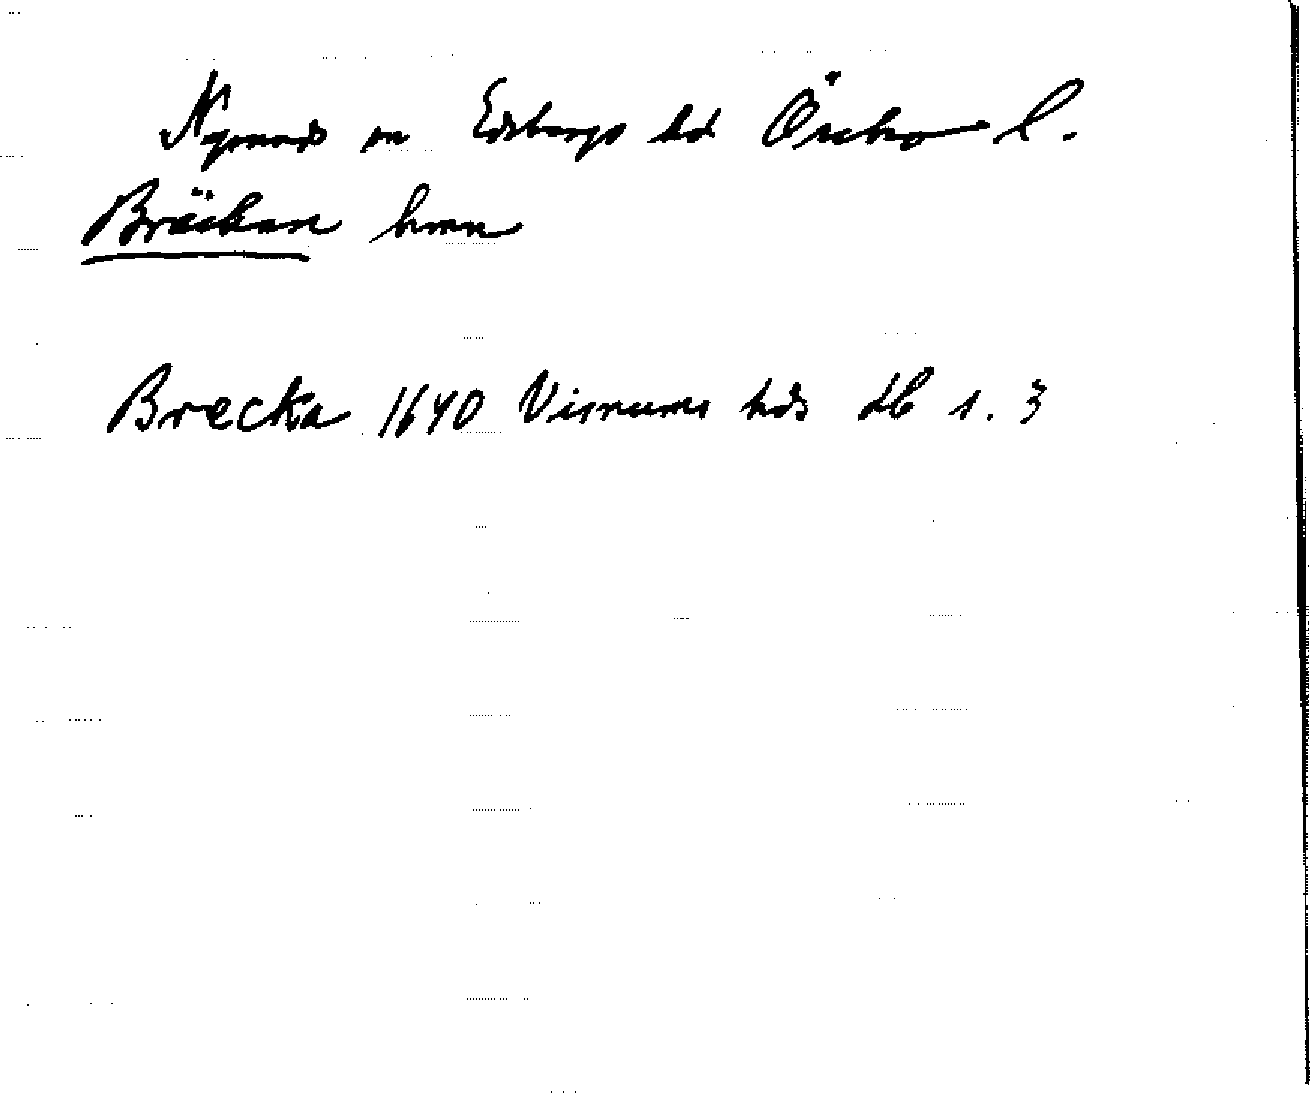 Nysunds sn Edsbergs hd Örebro l.
Bräckan hmn
Brecka 1640 Visnums hds db s. 3